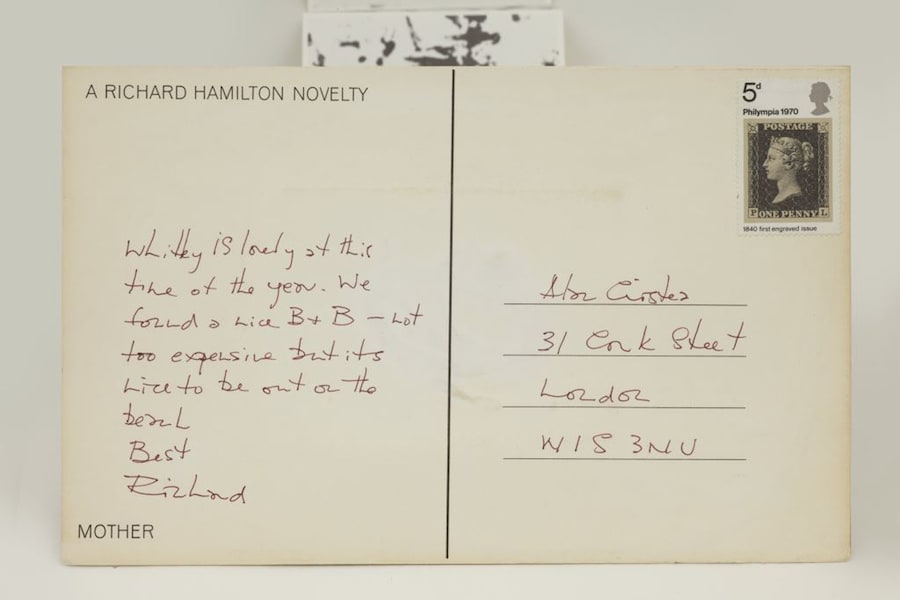 A RICHARD HAMILTON NOVELTY
5d
Philympia 1970
POSTAGE
P ONE PENNY L
1840 first engraved issue
Whitby is lovely at this
time of the year. We
found a nice B+B – not
too expensive but its
nice to be out on the
beach
Best
Richard
MOTHER
Alan Cristea
31 Cork Street
London
W1S 3NU